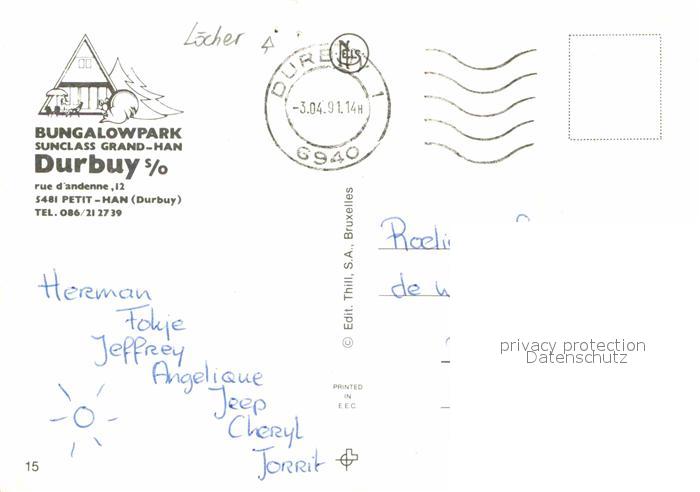 Löcher
BUNGALOWPARK
SUNCLASS GRAND-HAN
Durbuy s/o
rue d'andenne,12
5481 PETIT-HAN (Durbuy)
TEL. 086/21 27 39
NELS
DURBUY 1
-3.04.91.14H
6940
© Edit. Thill, S.A., Bruxelles
de
privacy protection
Datenschutz
Herman
Fokje
Jeffrey
Angelique
Jeep
Cheryl
Jorrit
PRINTED
IN
E.E.C.
15